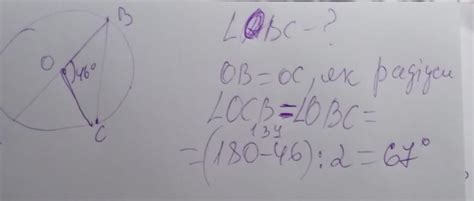 B
O
46°
C
∠OBC-?
OB=OC, як радіуси
∠OCB=∠OBC=
134
=(180-46):2=67°